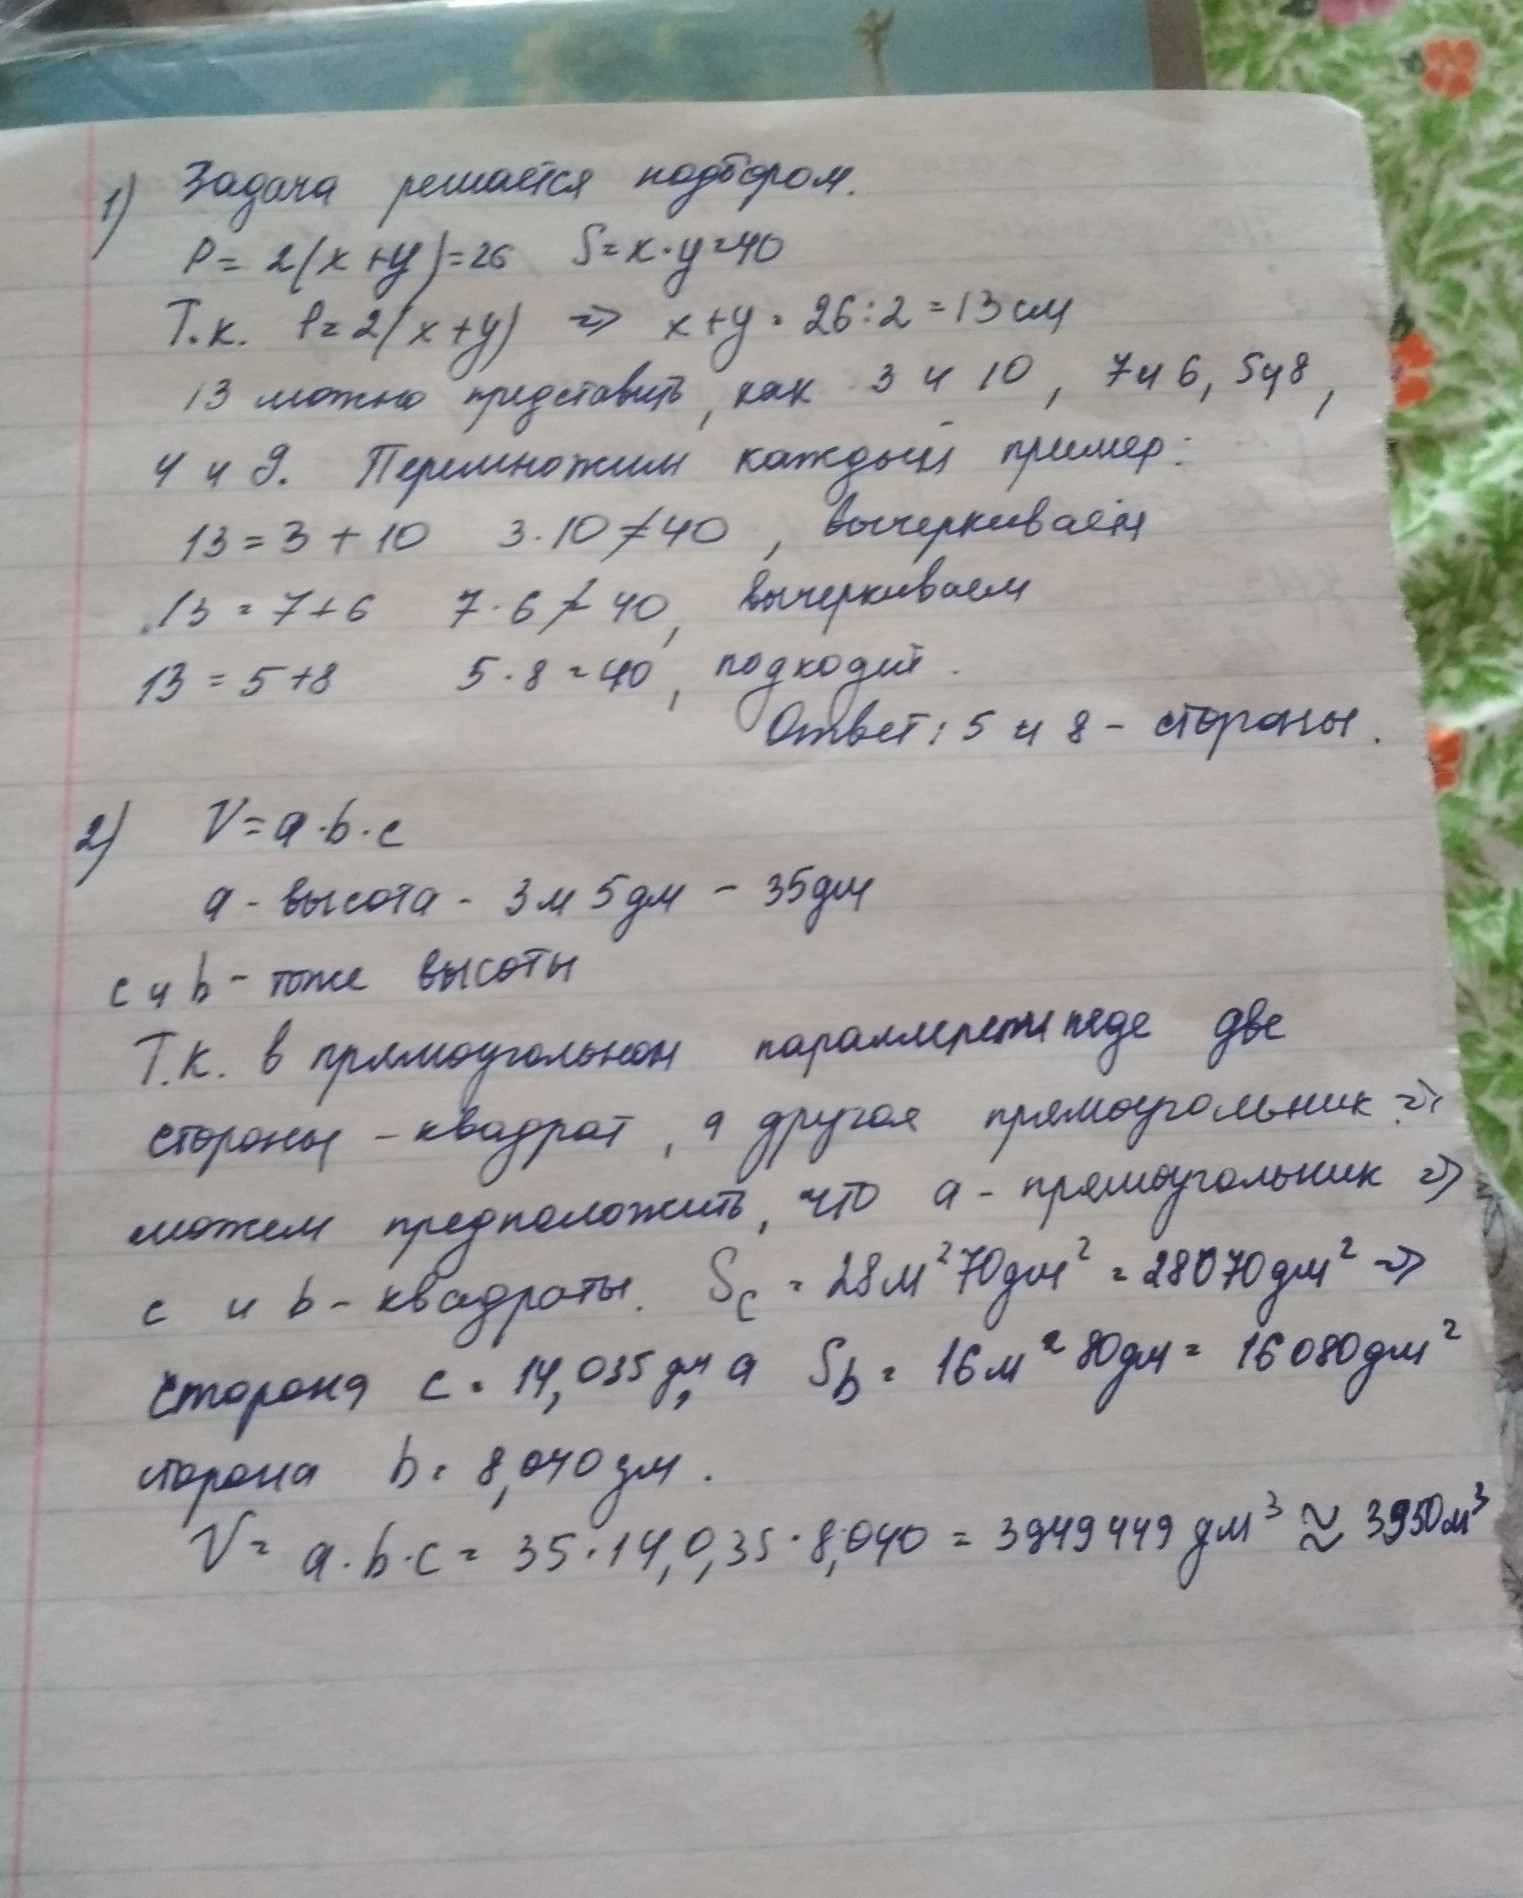 1) Задача решается подбором.
P = 2(x+y)=26 S=x·y=40
Т.к. P=2(x+y) => x+y = 26:2=13 см
13 можно представить, как 3 и 10, 7 и 6, 5 и 8,
4 и 9. Перемножим каждый пример:
13 = 3 + 10 3·10≠40, вычеркиваем
13 = 7+6 7·6≠40, вычеркиваем
13 = 5+8 5·8=40, подходит.
Ответ: 5 и 8 - стороны.
2) V=a·b·c
a - высота - 3м 5дм - 35дм
c и b - тоже высоты
Т.к. в прямоугольном параллерепипеде две
стороны - квадрат, а другая прямоугольник =>
можем предположить, что a - прямоугольник =>
c и b - квадраты. Sc = 28м² 70дм² = 28070дм² =>
сторона c = 14,035 дм, а Sb = 16м² 80дм = 16080дм²
сторона b = 8,040 дм.
V= a·b·c = 35·14,0,35·8,040 = 3949449 дм³ ≈ 3950м³